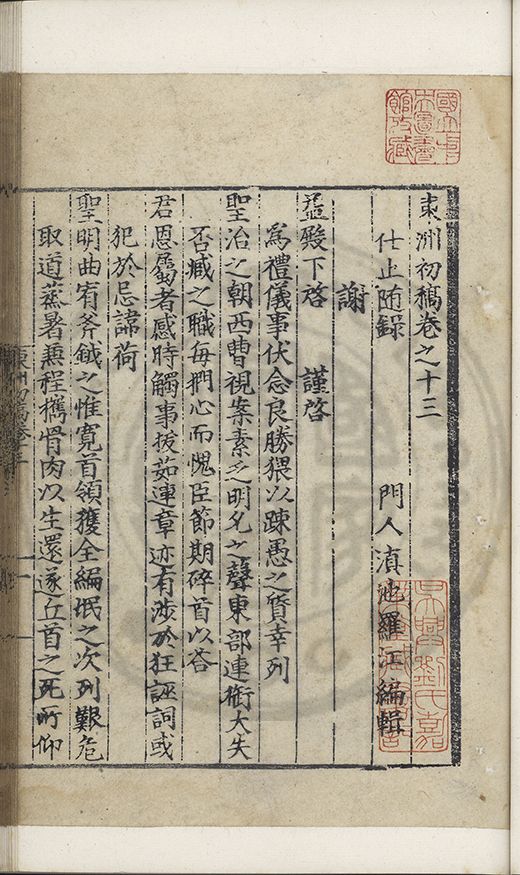 東洲初稿卷之十三
仕止随錄 門人滇池羅江編輯
謝
益殿下啓 謹啓
爲禮儀事伏念良勝猥以踈愚之質幸列
聖治之朝西曹視案素乏明允之聲東部連銜大失
否臧之職每捫心而愧臣節期碎首以答
君恩屬者感時觸事拔茹連章迹有涉於狂誣詞或
犯於忌諱荷
聖明曲宥斧鉞之惟寬首領獲全編氓之次列艱危
取道蒸暑兼程攜骨肉以生還遂丘首之死所仰
東洲初稿卷十三
國立中
央圖書
館收藏
吳興劉氏嘉
業堂藏書